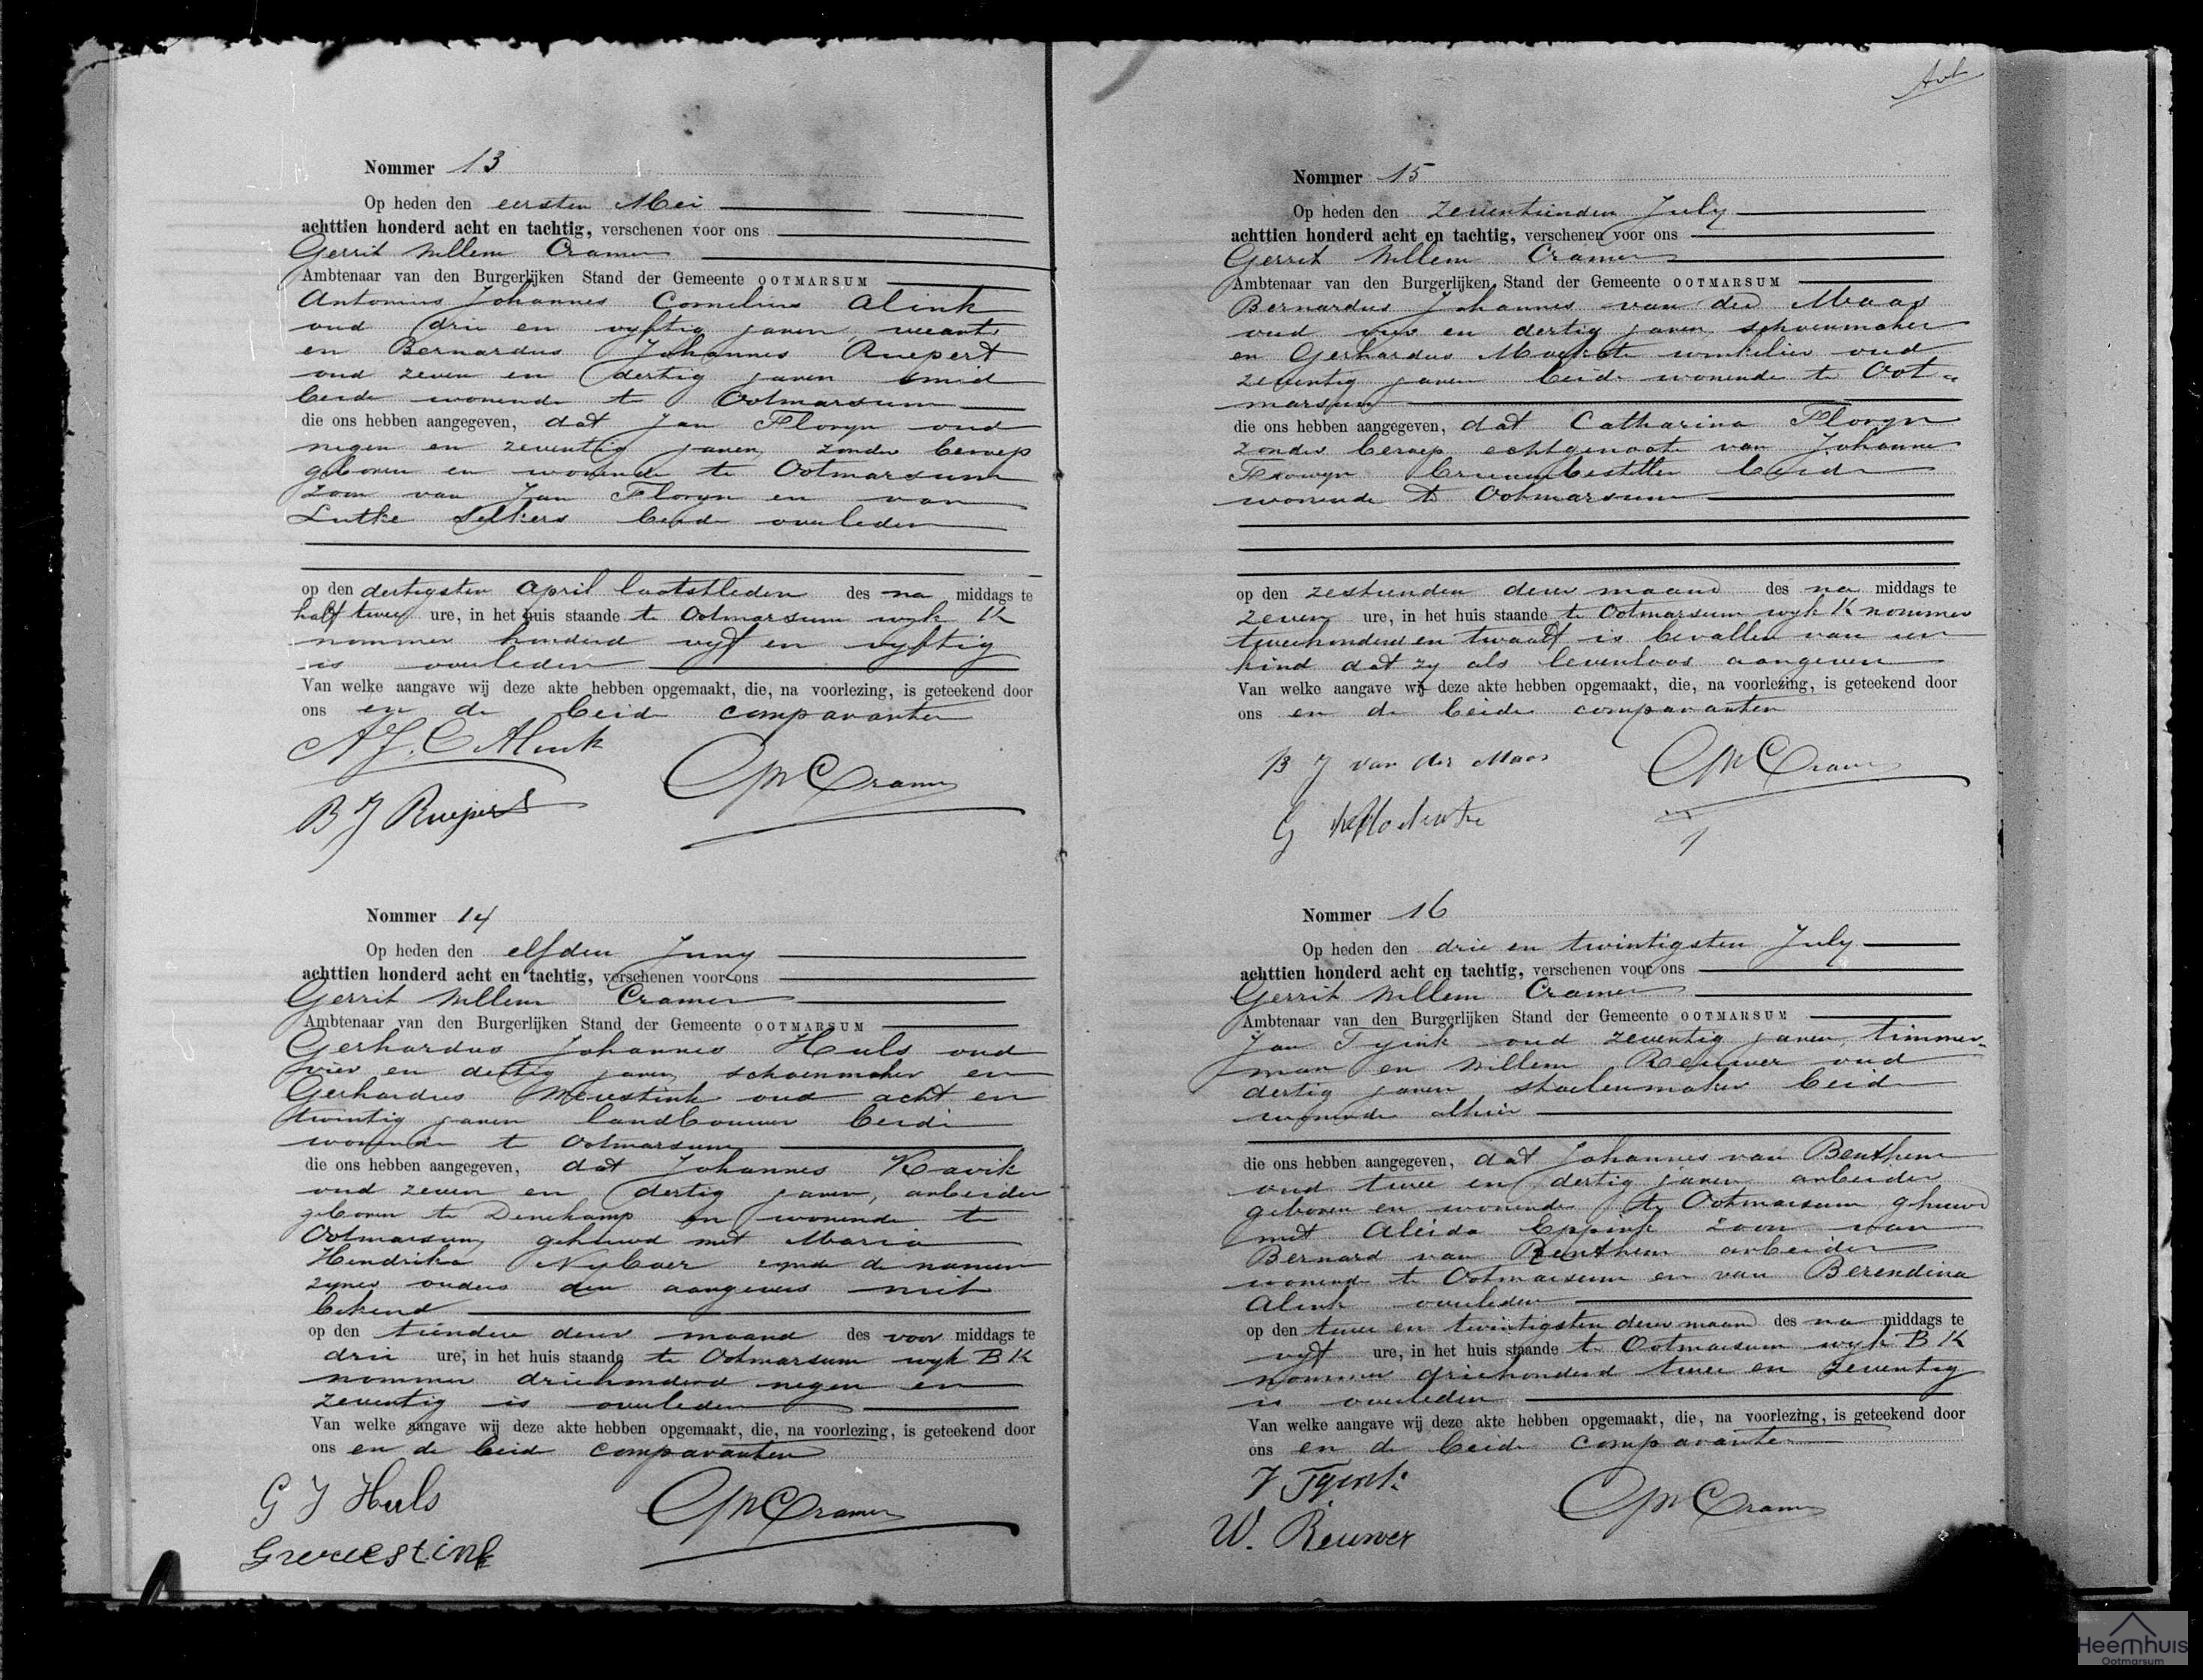 Nommer 13
Op heden den eersten Mei
achttien honderd acht en tachtig, verschenen voor ons
Gerrit Willem Cramer
Ambtenaar van den Burgerlijken Stand der Gemeente OOTMARSUM
Antonius Johannes Cornelius Alink
oud drie en vyftig jaren,
en Bernardus Johannes Ruepert
oud zeven en dertig jaren smid
beide wonende te Ootmarsum
die ons hebben aangegeven, dat Jan Floryn oud
negen en zeventig jaren, zonder beroep
geboren en wonende te Ootmarsum
zoon van Jan Floryn en van
Lutke Selkers beide overleden
op den dertigsten April laatstleden des na middags te
half twee ure, in het huis staande te Ootmarsum wyk K
nommer honderd vyf en vyftig
is overleden
Van welke aangave wij deze akte hebben opgemaakt, die, na voorlezing, is geteekend door
ons en de beide comparanten
A J. C Alink
GWCramer
B J Ruepert
Nommer 14
Op heden den elfden Juny
achttien honderd acht en tachtig, verschenen voor ons
Gerrit Willem Cramer
Ambtenaar van den Burgerlijken Stand der Gemeente OOTMARSUM
Gerhardus Johannes Huls oud
vier en dertig jaren, schoenmaker en
Gerhardus Meuestink oud acht en
twintig jaren landbouwer beide
wonende te Ootmarsum
die ons hebben aangegeven, dat Johannes Kavik
oud zeven en dertig jaren, arbeider
geboren te Denekamp en wonende te
Ootmarsum, gehuwd met Maria
Hendrika Nyboer zynde de namen
zyner ouders den aangevers niet
bekend
op den tienden dezer maand des voor middags te
drie ure, in het huis staande te Ootmarsum wyk B K
nommer driehonderd negen en
zeventig is overleden
Van welke aangave wij deze akte hebben opgemaakt, die, na voorlezing, is geteekend door
ons en de beide comparanten
G J Huls
GWCramer
Nommer 15
Op heden den zeventienden July
achttien honderd acht en tachtig, verschenen voor ons
Gerrit Willem Cramer
Ambtenaar van den Burgerlijken Stand der Gemeente OOTMARSUM
Bernardus Johannes van der Maas
oud vier en dertig jaren, schoenmaker
en Gerhardus winkelier oud
zeventig jaren beide wonende te Oot=
marsum
die ons hebben aangegeven, dat Catharina Floryn
zonder beroep echtgenoote van Johannes
Frowyn brievenbesteller beide
wonende te Ootmarsum
op den zestienden dezer maand des na middags te
zeven ure, in het huis staande te Ootmarsum wyk K nommer
tweehonderd en twaalf is bevallen van een
kind dat zy als levenloos aangeven
Van welke aangave wij deze akte hebben opgemaakt, die, na voorlezing, is geteekend door
ons en de beide comparanten
B J van der Maas
GWCramer
G
Nommer 16
Op heden den drie en twintigsten July
achttien honderd acht en tachtig, verschenen voor ons
Gerrit Willem Cramer
Ambtenaar van den Burgerlijken Stand der Gemeente OOTMARSUM
Jan Tyink oud zeventig jaren, timmer=
man en Willem Reuwer oud
dertig jaren, stoelenmaker beide
wonende alhier
die ons hebben aangegeven, dat Johannes van Benthem
oud twee en dertig jaren arbeider
geboren en wonende te Ootmarsum gehuwd
met Aleida Eppink zoon van
Bernard van Benthem arbeider
wonende te Ootmarsum en van Berendina
Alink overleden
op den twee en twintigsten dezer maand des na middags te
vyf ure, in het huis staande te Ootmarsum wyk B K
nommer driehonderd twee en zeventig
is overleden
Van welke aangave wij deze akte hebben opgemaakt, die, na voorlezing, is geteekend door
ons en de beide comparanten
J Tyink
GWCramer
W. Reuwer
Heemhuis
Ootmarsum